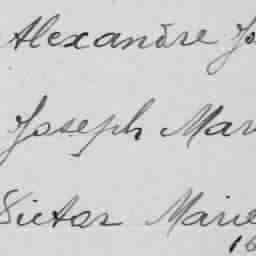 Alexandre Jo
Joseph Mar
Victor Marie
16